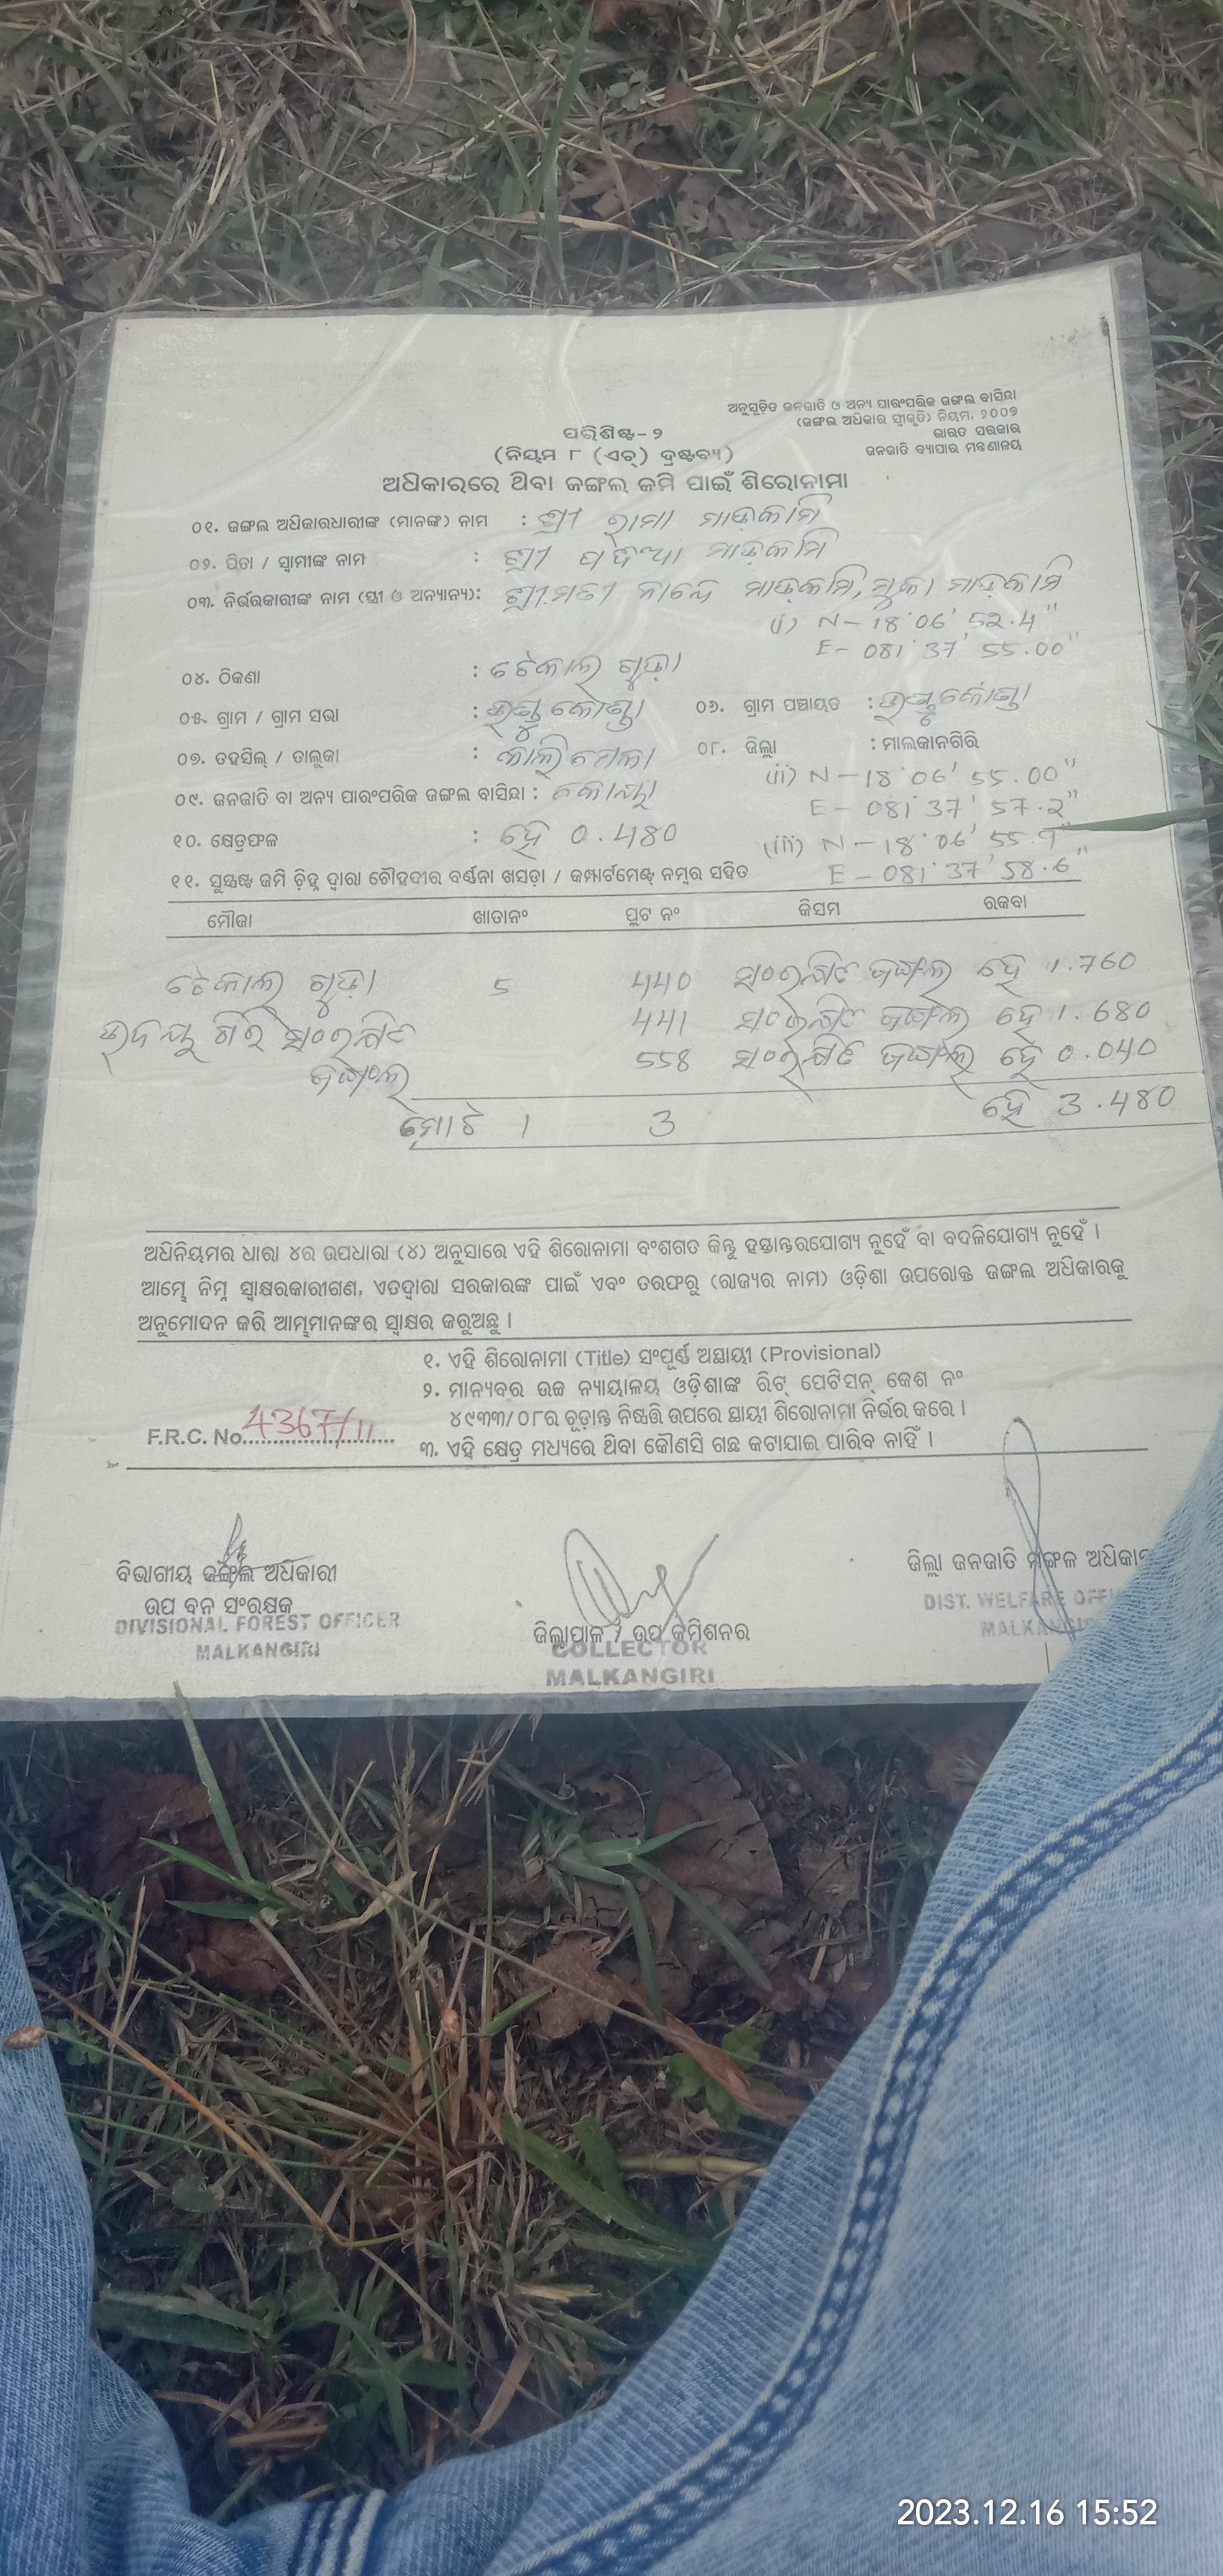 ଅନୁସୂଚିତ ଜନଜାତି ଓ ଅନ୍ୟ ପାରଂପରିକ ଜଙ୍ଗଲ ବାସିନ୍ଦା
(ଜଙ୍ଗଲ ଅଧିକାର ସ୍ୱୀକୃତି) ନିୟମ, ୨୦୦୭
ଭାରତ ସରକାର
ଜନଜାତି ବ୍ୟାପାର ମନ୍ତ୍ରଣାଳୟ
ପରିଶିଷ୍ଟ-୨
(ନିୟମ ୮ (ଏଚ୍) ଦ୍ରଷ୍ଟବ୍ୟ)
ଅଧିକାରରେ ଥିବା ଜଙ୍ଗଲ ଜମି ପାଇଁ ଶିରୋନାମା
୦୧. ଜଙ୍ଗଲ ଅଧିକାରଧାରୀଙ୍କ (ମାନଙ୍କ) ନାମ : ଶ୍ରୀ ରାମା ମାଡ଼କାମି
୦୨. ପିତା / ସ୍ୱାମୀଙ୍କ ନାମ : ଶ୍ରୀ ମାଡ଼କାମି
୦୩. ନିର୍ଭରକାରୀଙ୍କ ନାମ (ସ୍ତ୍ରୀ ଓ ଅନ୍ୟାନ୍ୟ): ଶ୍ରୀମତୀ ମାଡ଼କାମି, ମୁକା ମାଡ଼କାମି
(i) N-18°06' 52.4"
E-081°37' 55.00"
୦୪. ଠିକଣା : ଟେକାଲ ଗୁଡ଼ା
୦୫. ଗ୍ରାମ / ଗ୍ରାମ ସଭା : ୦୬. ଗ୍ରାମ ପଞ୍ଚାୟତ :
୦୭. ତହସିଲ୍ / ତାଲୁକା : କାଲିମେଳା ୦୮. ଜିଲ୍ଲା : ମାଲକାନଗିରି
(ii) N-18°06' 55.00"
E-081°37' 57.2"
୦୯. ଜନଜାତି ବା ଅନ୍ୟ ପାରଂପରିକ ଜଙ୍ଗଲ ବାସିନ୍ଦା : କୋୟା
୧୦. କ୍ଷେତ୍ରଫଳ : ହେ 0.480
(iii) N-18°06' 55.9"
E-081°37' 58.6"
୧୧. ସୁସ୍ପଷ୍ଟ ଜମି ଚିହ୍ନ ଦ୍ୱାରା ଚୌହଦୀର ବର୍ଣ୍ଣନା ଖସଡ଼ା / କମ୍ପାର୍ଟମେଣ୍ଟ ନମ୍ବର ସହିତ
ମୌଜା ଖାତାନଂ ପ୍ଲଟ ନଂ କିସମ ରକବା
ଟେକାଲ ଗୁଡ଼ା 5 440 ସଂରକ୍ଷିତ ଜଙ୍ଗଲ ହେ 1.760
ଗିରି ସଂରକ୍ଷିତ 441 ସଂରକ୍ଷିତ ଜଙ୍ଗଲ ହେ 1.680
ଜଙ୍ଗଲ 558 ସଂରକ୍ଷିତ ଜଙ୍ଗଲ ହେ 0.040
ମୋଟ 1 3 ହେ 3.480
ଅଧିନିୟମର ଧାରା ୪ର ଉପଧାରା (୪) ଅନୁସାରେ ଏହି ଶିରୋନାମା ବଂଶଗତ କିନ୍ତୁ ହସ୍ତାନ୍ତରଯୋଗ୍ୟ ନୁହେଁ ବା ବଦଳିଯୋଗ୍ୟ ନୁହେଁ ।
ଆମ୍ଭେ ନିମ୍ନ ସ୍ୱାକ୍ଷରକାରୀଗଣ, ଏତଦ୍ୱାରା ସରକାରଙ୍କ ପାଇଁ ଏବଂ ତରଫରୁ (ରାଜ୍ୟର ନାମ) ଓଡ଼ିଶା ଉପରୋକ୍ତ ଜଙ୍ଗଲ ଅଧିକାରକୁ
ଅନୁମୋଦନ କରି ଆମ୍ଭମାନଙ୍କର ସ୍ୱାକ୍ଷର କରୁଅଛୁ ।
୧. ଏହି ଶିରୋନାମା (Title) ସଂପୂର୍ଣ୍ଣ ଅସ୍ଥାୟୀ (Provisional)
୨. ମାନ୍ୟବର ଉଚ୍ଚ ନ୍ୟାୟାଳୟ ଓଡ଼ିଶାଙ୍କ ରିଟ୍ ପେଟିସନ୍ କେଶ ନଂ
୪୯୩୩/୦୮ର ଚୂଡ଼ାନ୍ତ ନିଷ୍ପତ୍ତି ଉପରେ ସ୍ଥାୟୀ ଶିରୋନାମା ନିର୍ଭର କରେ ।
F.R.C. No. 4367/11
୩. ଏହି କ୍ଷେତ୍ର ମଧ୍ୟରେ ଥିବା କୌଣସି ଗଛ କଟାଯାଇ ପାରିବ ନାହିଁ ।
ବିଭାଗୀୟ ଜଙ୍ଗଲ ଅଧିକାରୀ
ଉପ ବନ ସଂରକ୍ଷକ
DIVISIONAL FOREST OFFICER
MALKANGIRI
ଜିଲ୍ଲାପାଳ / ଉପ କମିଶନର
COLLECTOR
MALKANGIRI
ଜିଲ୍ଲା ଜନଜାତି ମଙ୍ଗଳ ଅଧିକା
DIST. WELFARE OFFI
MALKANGI
2023.12.16 15:52